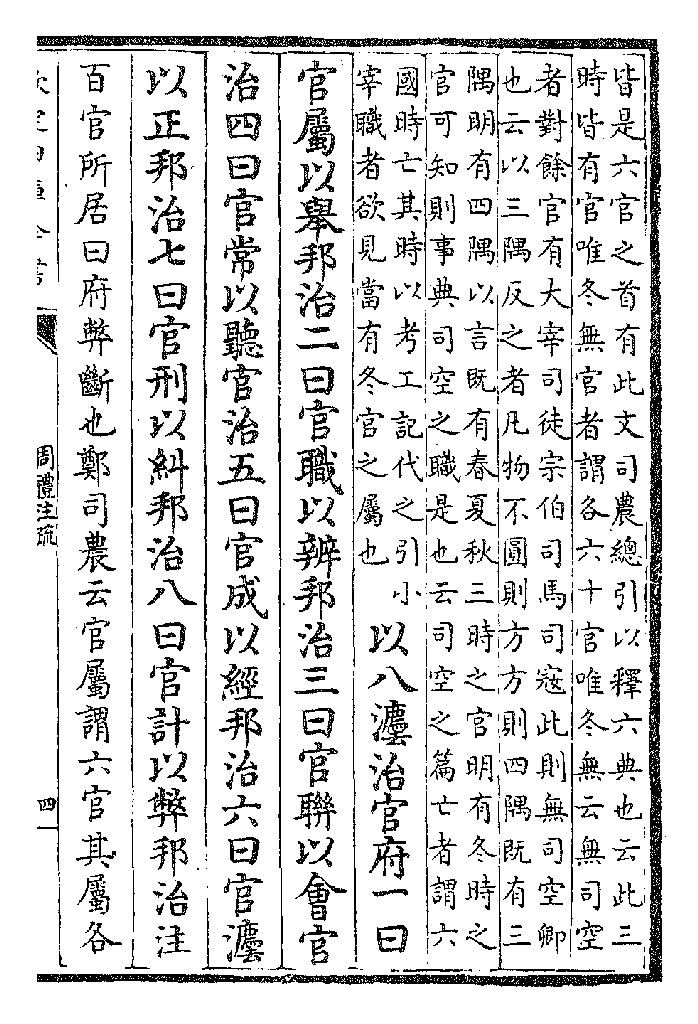 皆是六官之首有此文司農總引以釋六典也云此三
時皆有官唯冬無官者謂各六十官唯冬無云無司空
者對餘官有大宰司徒宗伯司馬司寇此則無司空卿
也云以三隅反之者凡物不圓則方方則四隅既有三
隅明有四隅以言既有春夏秋三時之官明有冬時之
官可知則事典司空之職是也云司空之篇亡者謂六
國時亡其時以考工記代之引小
宰職者欲見當有冬官之屬也
以八灋治官府一曰
官屬以舉邦治二曰官職以辨邦治三曰官聯以會官
治四曰官常以聽官治五曰官成以經邦治六曰官灋
以正邦治七曰官刑以糾邦治八曰官計以弊邦治注
百官所居曰府弊斷也鄭司農云官屬謂六官其屬各
周禮注疏
四